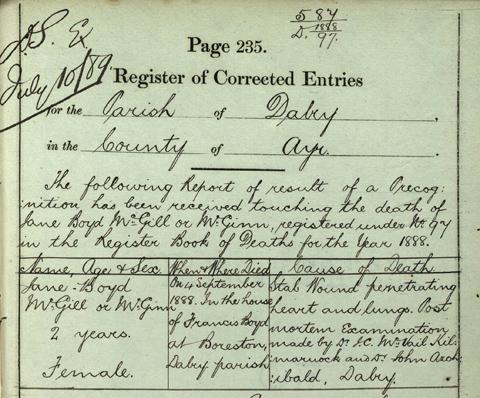 J.S. Ex
July 10/89.
587
D. 1888
97.
Page 235.
Register of Corrected Entries
for the Parish of Dalry,
in the County of Ayr.
The following Report of result of a Precog:
:nition has been received touching the death of
Jane Boyd McGill or McGinn, registered under No. 97
in the Register Book of Deaths for the Year 1888.
Name, Age & Sex. When & Where Died Cause of Death
Jane Boyd On 4 September Stab Wound penetrating
McGill or McGinn 1888. In the house heart and lungs. Post
of Francis Boyd mortem Examination
2 years. at Boreston, made by Dr. J.C. McVail Kil-
Dalry parish marnock and Dr. John Arch-
Female. ibald, Dalry.